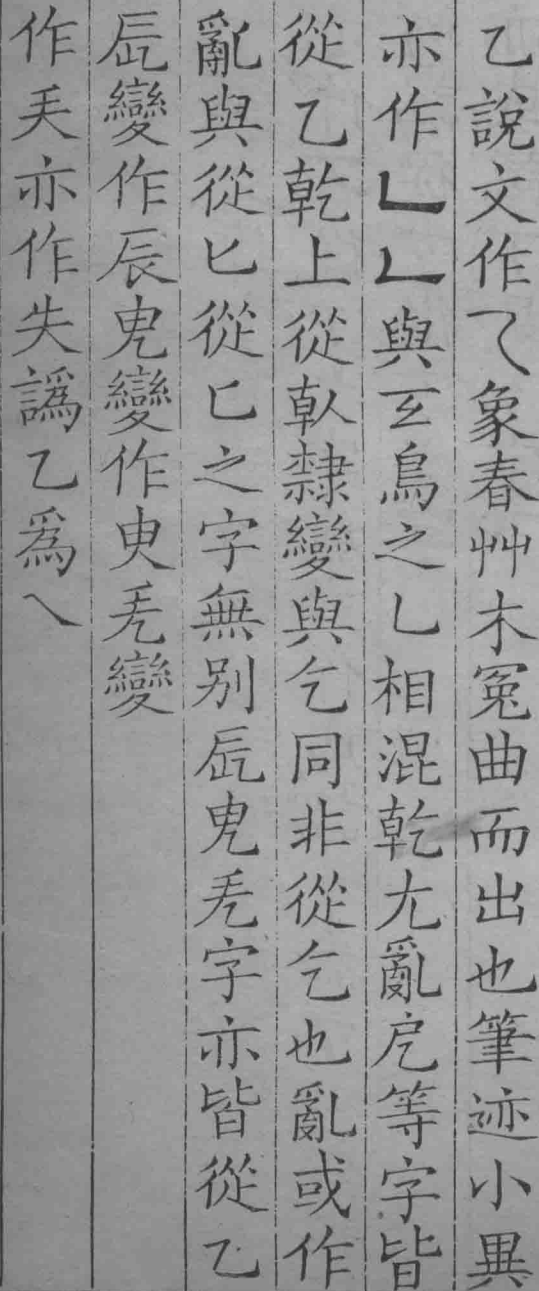 乙說文作乁象春艸木冤曲而出也筆迹小異
亦作𠃊𠃊與玄鳥之乚相混乾尢亂戹等字皆
從乙乾上從倝隸變與乞同非從乞也亂或作
亂與從匕從匸之字無别𠨷㒵㐬字亦皆從乙
變作辰變作㕜变
作𠂹亦作失譌乙爲乀